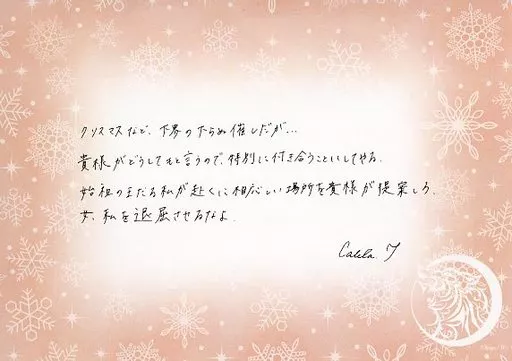 クリスマスなど、下界の下らぬ催しだが…
貴様がどうしてもと言うので、特別に付き合うことにしてやる。
始祖の王たる私が赴くに相応しい場所を貴様が提案しろ。
私を退屈させるなよ